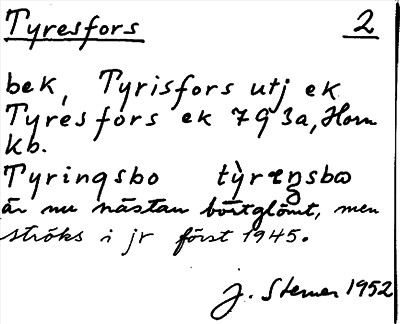 Tyresfors 2
bek, Tyrisfors utj ek
Tyresfors ek 793a, Horn
kb.
Tyringsbo tỳrɩŋsbω
är nu nästan bortglömt, men
ströks i jr först 1945.
J. Sterner 1952